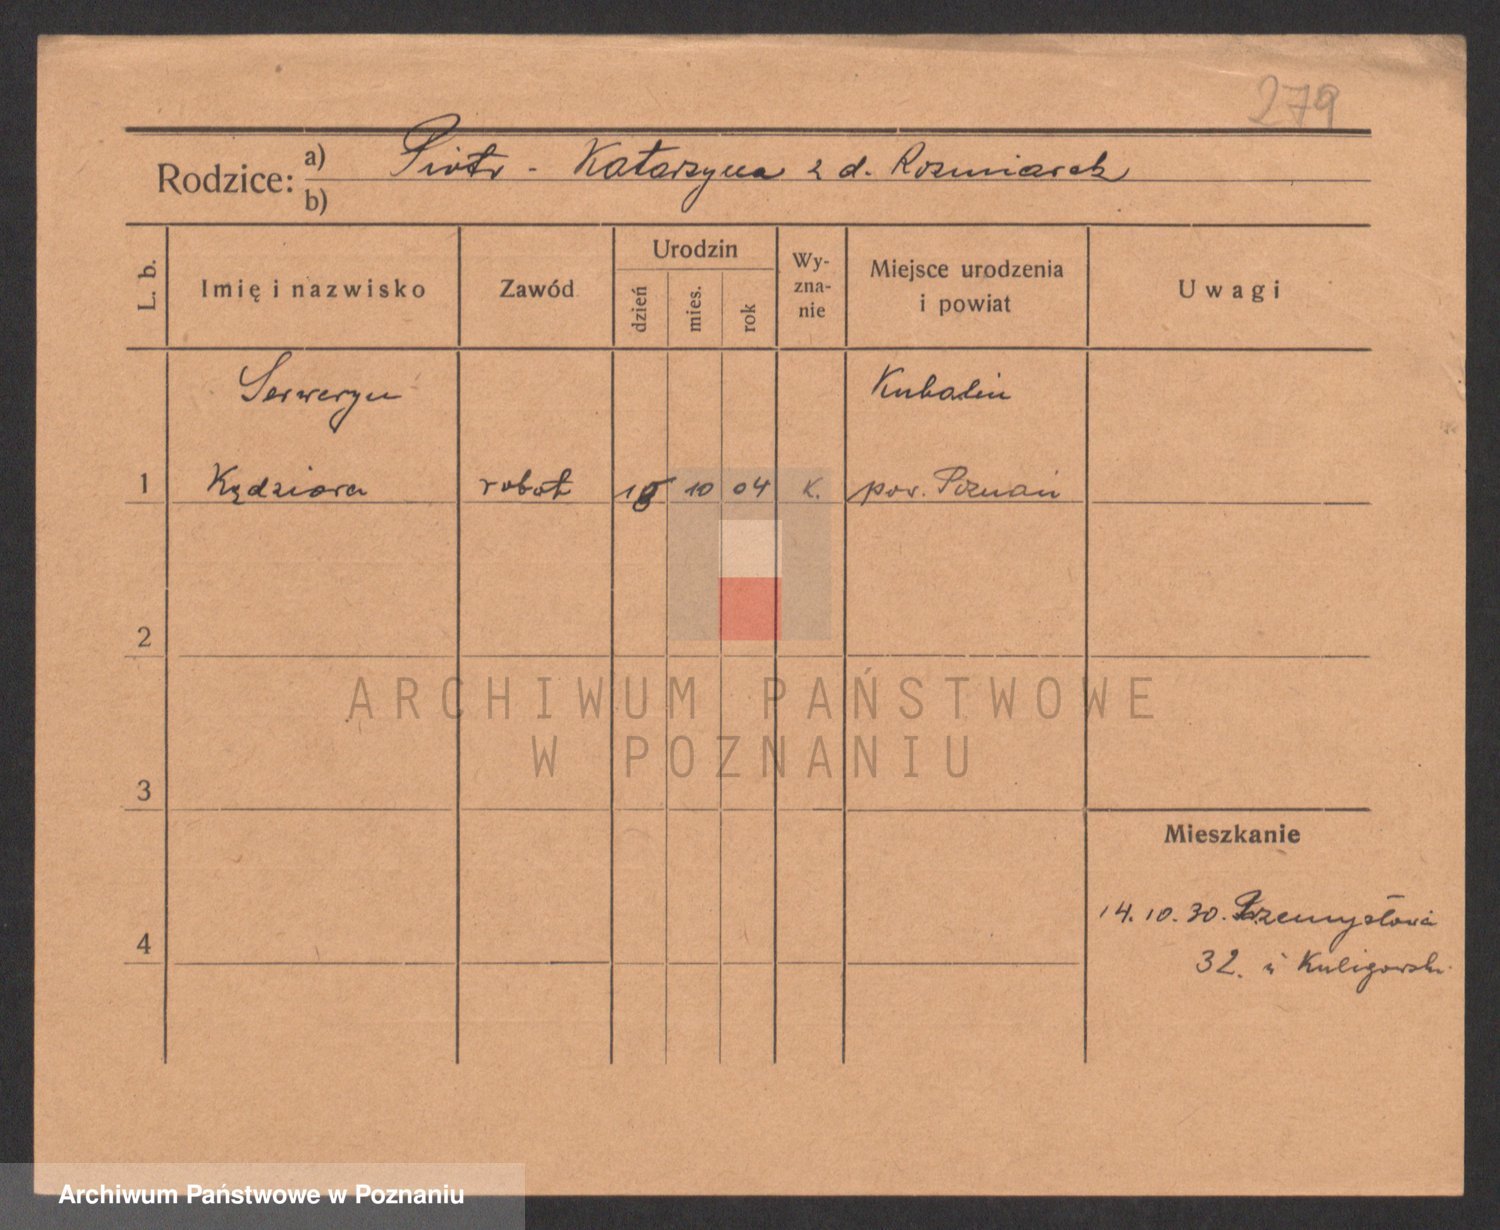 279
Rodzice: a) Piotr - Katarzyna z d. Rozmiarek
b)
L. b.
Imię i nazwisko
Zawód
Urodzin
dzień
mies.
rok
Wy-
zna-
nie
Miejsce urodzenia
i powiat
Uwagi
Serweryn
Kubalin
1 Kędziora robot 10 04 K. pow. Poznań
2
ARCHIWUM PAŃSTWOWE
W POZNANIU
3
Mieszkanie
14.10.30. Przemysłowa
4
32. u Kuligowsk.
Archiwum Państwowe w Poznaniu